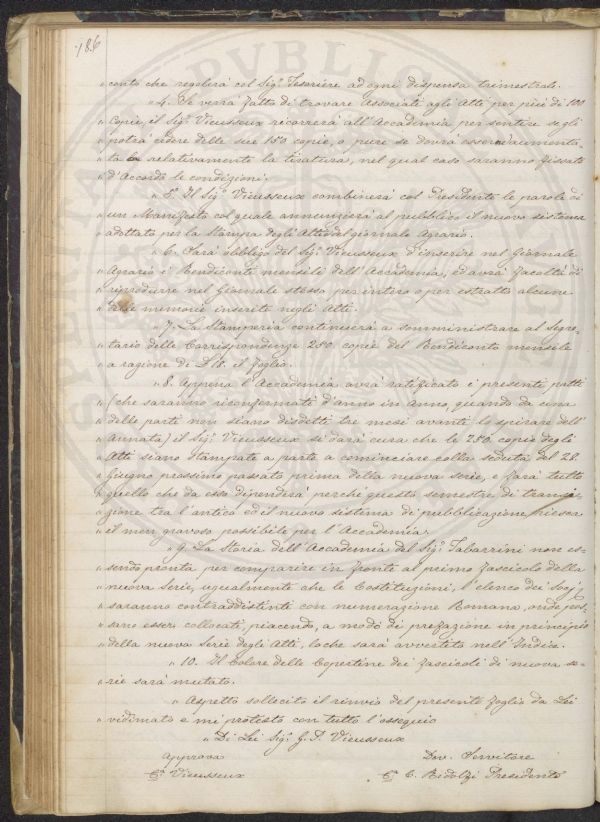 186
" conto che regolerà col Sig.r Tesoriere ad ogni dispensa trimestrale.
" 4. Se verrà fatto di trovare Associati agli Atti per più di 100
" Copie, il Sig.r Vieusseux ricorrerà all'Accademia per sentire se gli
" potrà cedere delle sue 150 copie, o pure se dovrà essere aumenta-
" ta relativamente la tiratura, nel qual caso saranno fissate
" d'Accordo le condizioni.
" 5. Il Sig.r Vieusseux combinerà col Presidente le parole di
" un Manifesto col quale annunzierà al pubblico il nuovo sistema
" adottato per la Stampa degli Atti e del giornale Agrario.
" 6. Sarà obbligo del Sig.r Vieusseux d'inserire nel Giornale
" Agrario i Rendiconti mensili dell'Accademia, ed avrà facoltà di
" riprodurre nel Giornale stesso per intero o per estratto alcune
" delle memorie inserite negli Atti.
" 7. La Stamperia continuerà a somministrare al Segre-
" tario delle Corrispondenze 250 copie del Rendiconto mensile
" a ragione di il foglio.
" 8. Appena l'Accademia avrà ratificato i presenti patti
" (che saranno riconfermati d'anno in anno, quando da una
" delle parti non siano disdetti tre mesi avanti lo spirare dell'
" Annata) il Sig.r Vieusseux si darà cura che le 250 copie degli
" Atti siano stampate a parte a cominciare colla seduta del 28
" Giugno prossimo passato prima della nuova serie, e farà tutto
" quello che da esso dipenderà perché questo semestre di transi-
" zione tra l'antico ed il nuovo sistema di pubblicazione, riesca
" il men gravoso possibile per l'Accademia.
" 9. La Storia dell'Accademia del Sig.r Tabarrini non es-
" sendo pronta per comparire in fronte al primo fascicolo della
" nuova Serie, ugualmente che le Costituzioni, l'elenco dei Socj,
" saranno contraddistinte con numerazione Romana, onde pos-
" sano esser collocati, piacendo, a modo di prefazione in principio
" della nuova Serie degli Atti, loche sarà avvertito nell'Indice.
" 10. Il Colore delle Copertine dei fascicoli di nuova se-
" rie sarà mutato.
" Aspetto sollecito il rinvio del presente foglio da Lei
" vidimato e mi protesto con tutto l'ossequio
" Di Lei Sig.r G. P. Vieusseux
Approvo Dev. Servitore
Vieusseux C. Ridolfi Presidente